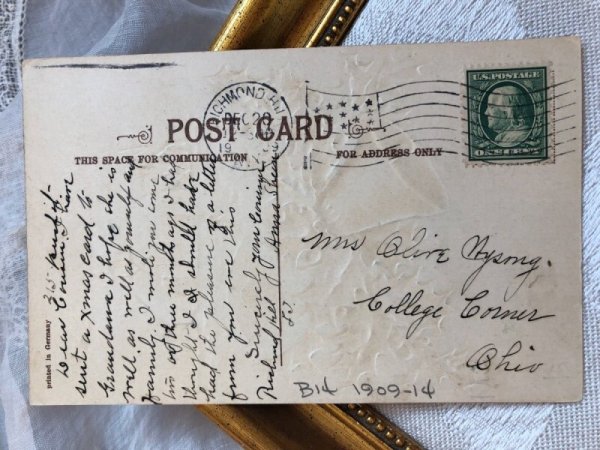 RICHMOND HILL
DEC 20
U.S. POSTAGE
ONE CENT
POST CARD
THIS SPACE FOR COMMUNICATION
FOR ADDRESS ONLY
printed in Germany
Dear Cousin I have
sent a Xmas card to
Grandma I hope she is
well as well as yourself and
family. I wrote you some
two or three months ago I had
thought I should have
had the pleasure of a letter
from you ere this
Sincerely your Cousin
Richmond Hill
L I
Mrs Olive Wysong.
College Corner
Ohio
B14 1909-14